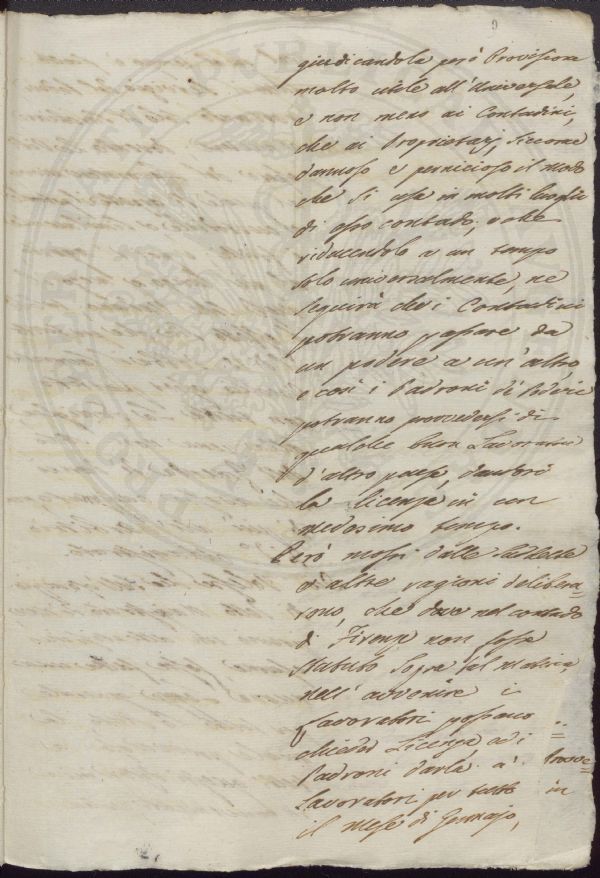 9
giudicandola però Provisione
molto utile all'Universale,
e non meno ai Contadini,
che ai Proprietarj, siccome
dannoso e pernicioso il modo
che si usa in molti luoghi
di esso contado, e che
riducendolo a un tempo
solo universalmente, ne
seguirà che i Contadini
potranno passare da
un podere a un'altro,
e così i Padroni de' Poderi
potranno provvedersi di
qualche buon Lavoratore
d'altro paese, dandosi
la licenza in un
medesimo tempo.
Però mossi dalle suddette
e altre ragioni delibera=
rono, che dove nel contado
di Firenze non fosse
Statuto sopra tal materia
nell' avvenire i
Lavoratori possano
chieder Licenza, ed i
Padroni darla a'
Lavoratori per tutto
il Mese di Gennajo,
in
PROSPERITATI PUBLICAE